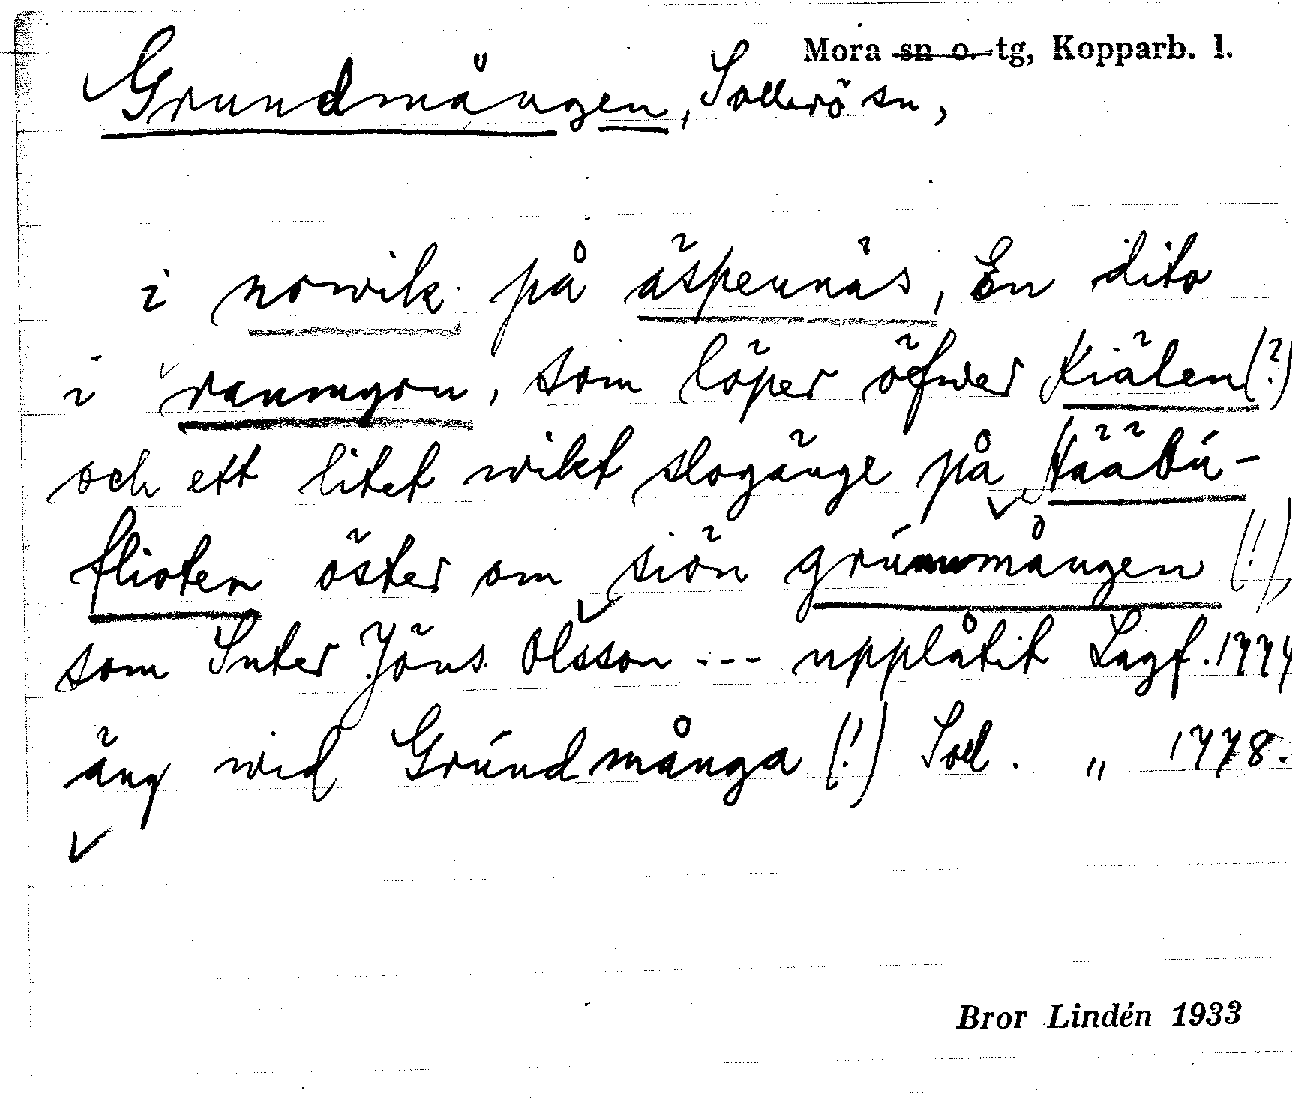 Mora sn o. tg, Kopparb. l.
Grundmången, Sollerö sn,
i nowik på äspennäs, En dito
i raumyrn, som löper öfwer Kiälen (?)
och ett litet wikt slogänge på ståäbú-
flioten öster om siön grúnnmången (!),
som Inter Jöns Olsson --- upplåtit Lagf. 1774
äng wid Grúndmånga (!) Soll. „ 1778.
Bror Lindén 1933